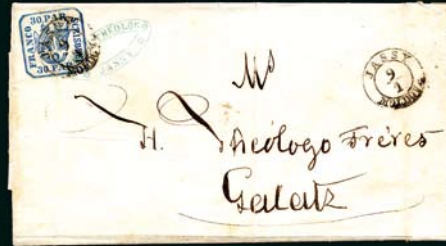 30 PAR
FRANCO
SCRISOREI
30 PAR
MOLDOVA
THEOLOGO
JASSY
JASSY
9/1
MOLDOVA
Ms
H. Theólogo Fréres
Galatz